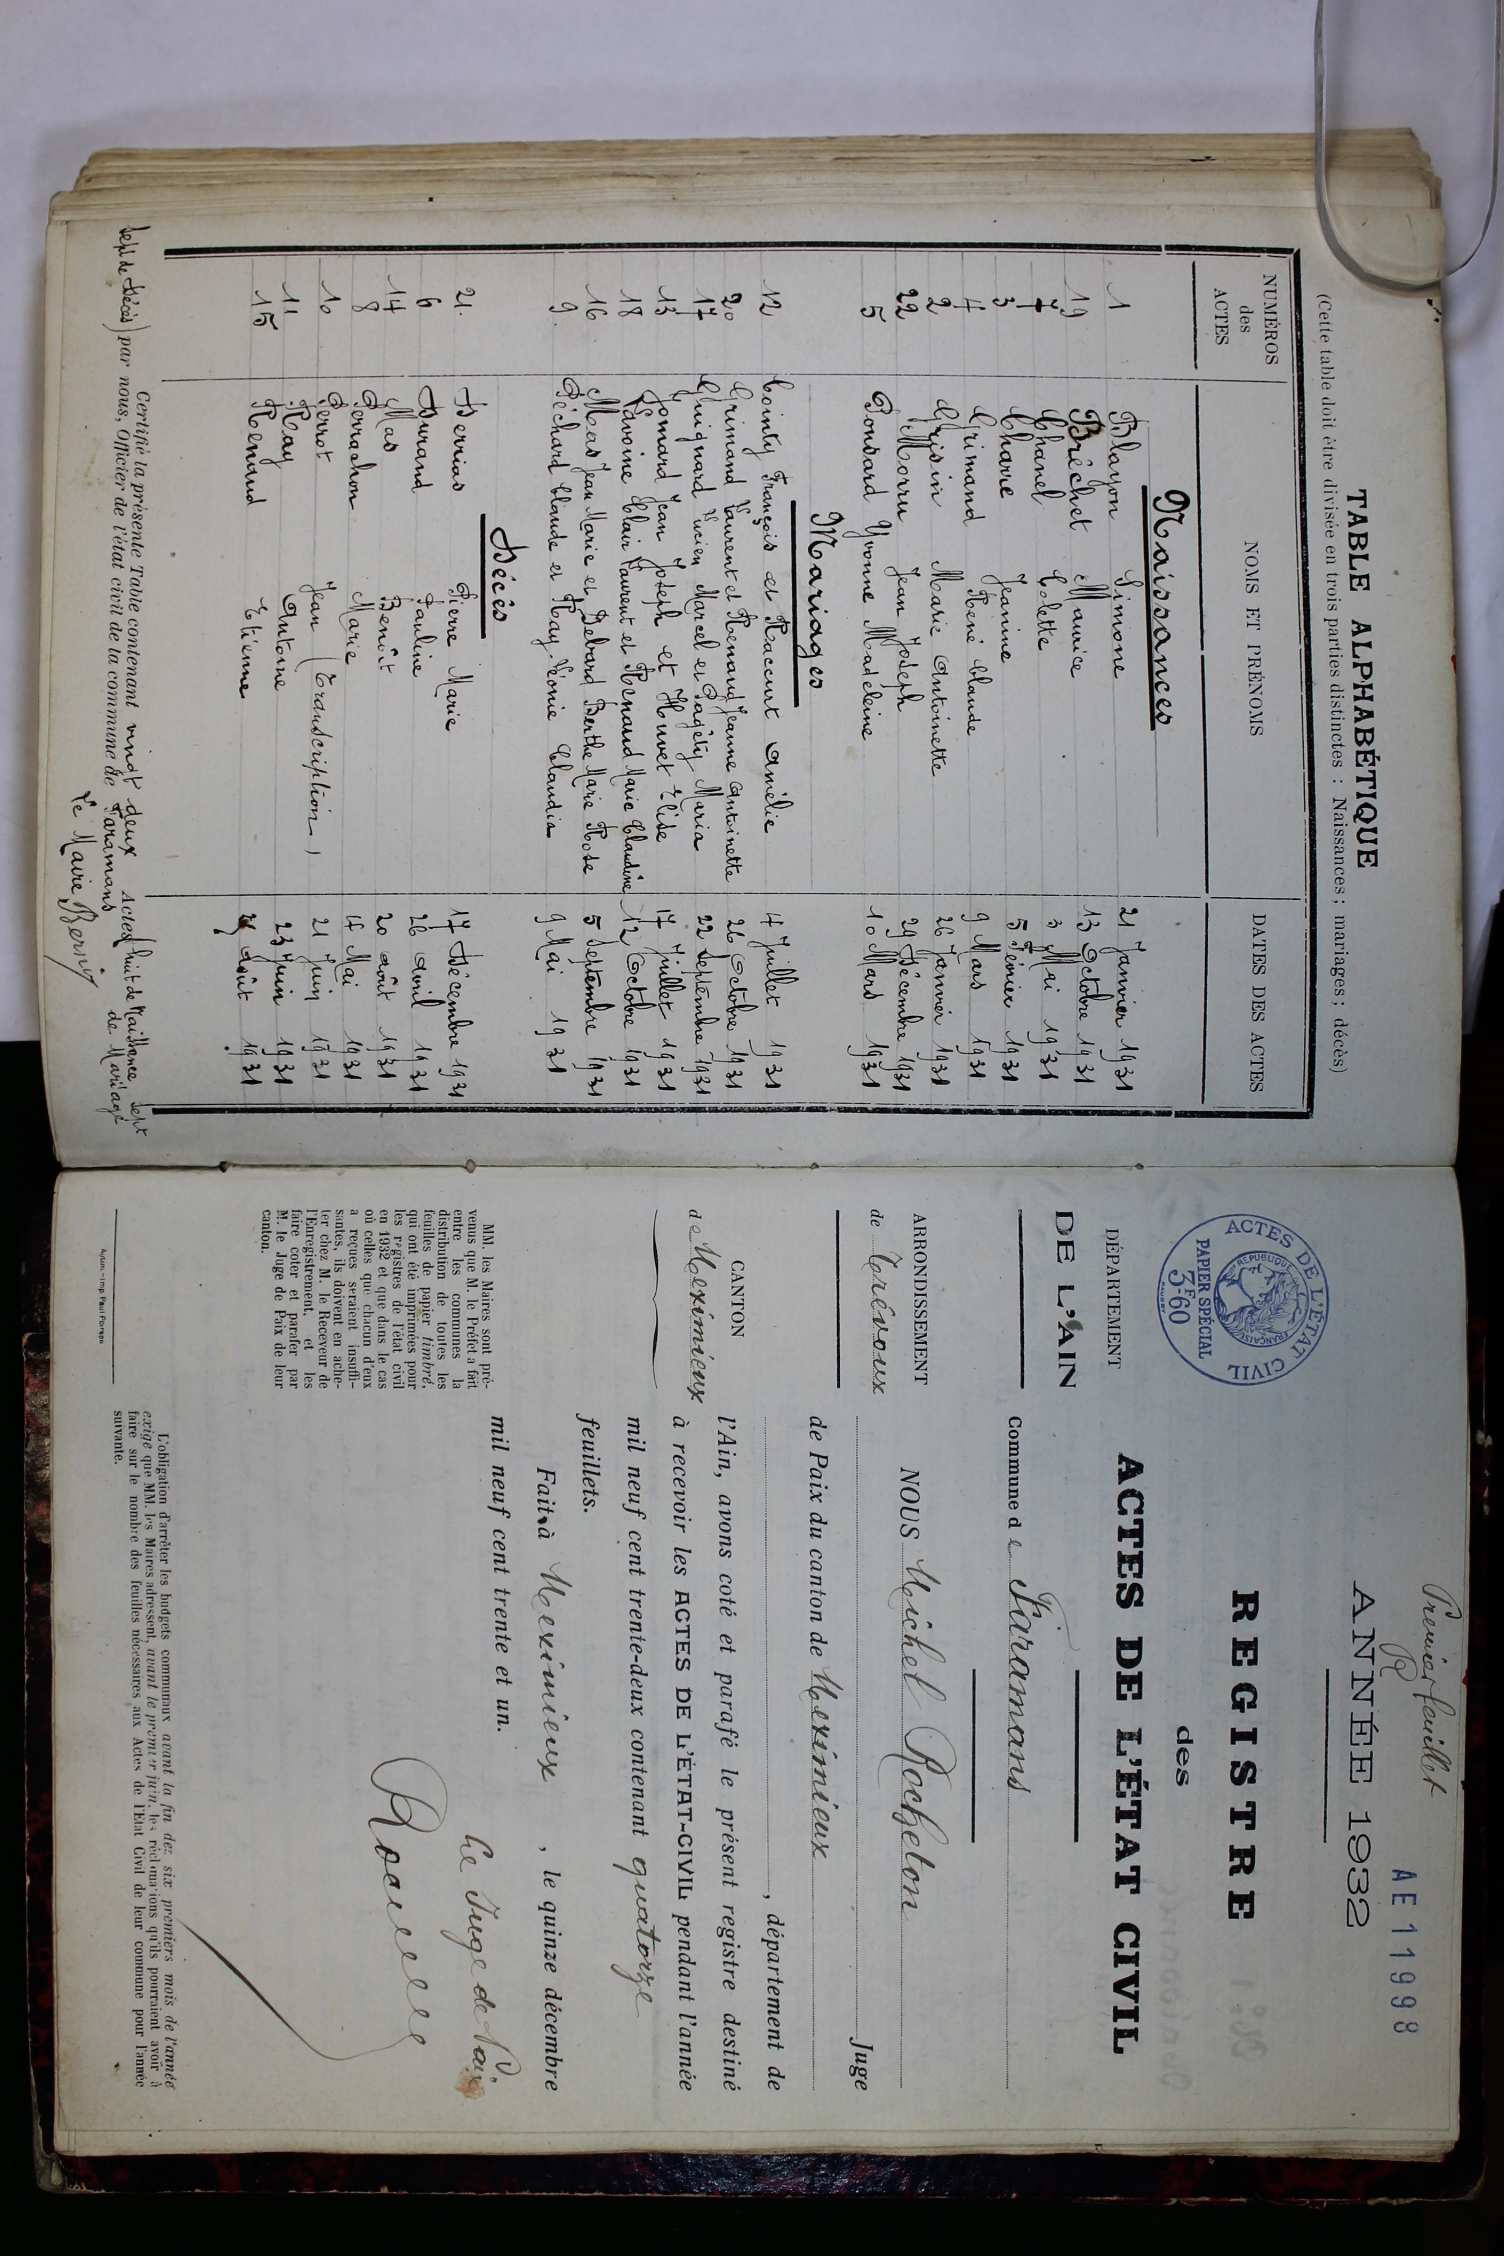 TABLE ALPHABÉTIQUE
(Cette table doit être divisée en trois parties distinctes : Naissances ; mariages ; décès)
NUMÉROS des ACTES NOMS ET PRÉNOMS DATES DES ACTES
Naissances
1 Blayon Simone 21 Janvier 1931
19 Bréchet Maurice 13 Octobre 1931
7 Chanel Colette 3 Mai 1931
3 Charre Jeanine 5 Février 1931
4 Grimand René Claude 9 Mars 1931
2 Grisin Marie Antoinette 26 Janvier 1931
22 Morru Jean Joseph 29 Décembre 1931
5 Ponsard Yvonne Madeleine 10 Mars 1931
Mariages
12 Cointy François et Raccurt Amélie 4 Juillet 1931
20 Grimand Laurent et Renaud Jeanne Antoinette 26 Octobre 1931
17 Guignard Lucien Marcel et Pagély Maria 22 Septembre 1931
13 Jomard Jean Joseph et Huvet Elise 17 Juillet 1931
18 Lavoine Clair Laurent et Renaud Marie Claudine 12 Octobre 1931
16 Mas Jean Marie et Debard Berthe Marie Rose 5 Septembre 1931
9 Péchard Claude et Ray Léonie Claudia 9 Mai 1931
Décès
21 Berrias Pierre Marie 17 Décembre 1931
6 Durand Pauline 26 Avril 1931
14 Mas Benoît 20 Août 1931
8 Perrachon Marie 4 Mai 1931
10 Perrot Jean (Transcription) 21 Juin 1931
11 Ray Antoine 23 Juin 1931
15 Renaud Etienne Août 1931
Certifié la présente Table contenant vingt deux Actes (huit de Naissance sept de Mariage
sept de Décès) par nous, Officier de l'état civil de la commune de Faramans
Le Maire
Premier feuillet
AE 11998
ANNÉE 1932
ACTES DE L'ÉTAT CIVIL
RÉPUBLIQUE FRANÇAISE
PAPIER SPÉCIAL
3F60
REGISTRE
des
ACTES DE L'ÉTAT CIVIL
DÉPARTEMENT
DE L'AIN
ARRONDISSEMENT
de Trévoux
CANTON
de Meximieux
MM. les Maires sont pré-
venus que M. le Préfet a fait
entre les communes la
distribution de toutes les
feuilles de papier timbré,
qui ont été imprimées pour
les registres de l'état civil
en 1932 et que dans le cas
où celles que chacun d'eux
a reçues seraient insuffi-
santes, ils doivent en ache-
ter chez M. le Receveur de
l'Enregistrement, et les
faire coter et parafer par
M. le Juge de Paix de leur
canton.
Autun. — Imp. Paul Pomeon
Commune de Faramans
NOUS Michel Rocheton
Juge
de Paix du canton de Meximieux
, département de
l'Ain, avons coté et parafé le présent registre destiné
à recevoir les ACTES DE L'ÉTAT-CIVIL pendant l'année
mil neuf cent trente-deux contenant quatorze
feuillets.
Fait à Meximieux , le quinze décembre
mil neuf cent trente et un.
Le Juge de Paix
L'obligation d'arrêter les budgets communaux avant la fin des six premiers mois de l'année
exige que MM. les Maires adressent, avant le premier juin, les réclamations qu'ils pourraient avoir à
faire sur le nombre des feuilles nécessaires aux Actes de l'Etat Civil de leur commune pour l'année
suivante.